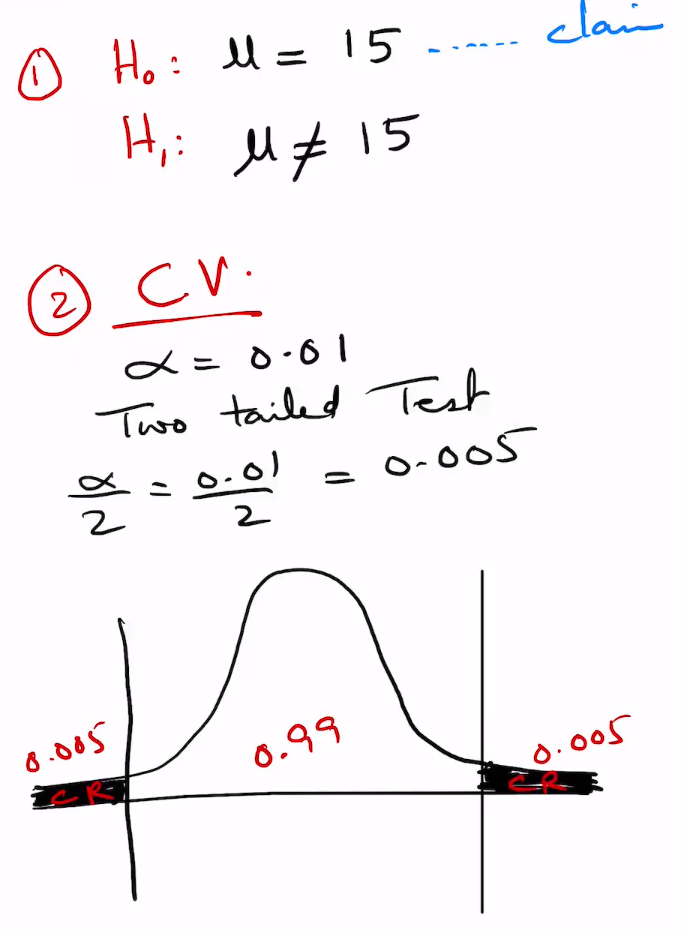 ① H₀: μ = 15 ...... claim
H₁: μ ≠ 15
② CV.
α = 0.01
Two tailed Test
α/2 = 0.01/2 = 0.005
0.005 0.99 0.005
CR CR